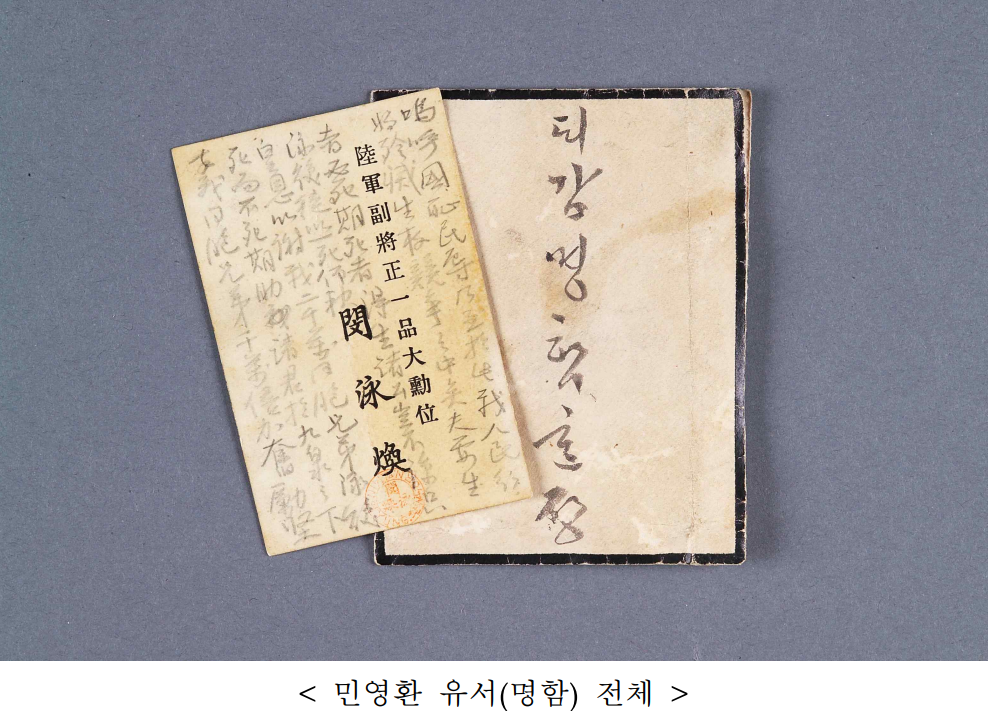 嗚呼國恥民辱乃至於此我人民行
將殄滅生存競爭之中矣夫要生
者必死期死者得生諸公豈不諒只
泳煥徒以一死仰報
皇恩以謝我二千萬同胞兄弟泳煥
死而不死期助諸君於九泉之下
幸我同胞兄弟千萬倍加奮勵堅
陸軍副將正一品大勳位
閔泳煥
ᄃᆡ감명함유셔
< 민영환 유서(명함) 전체 >